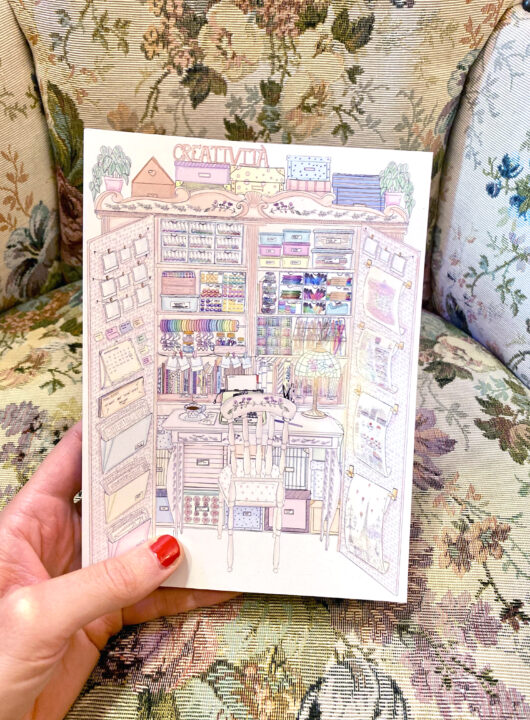 CREATIVITÀ